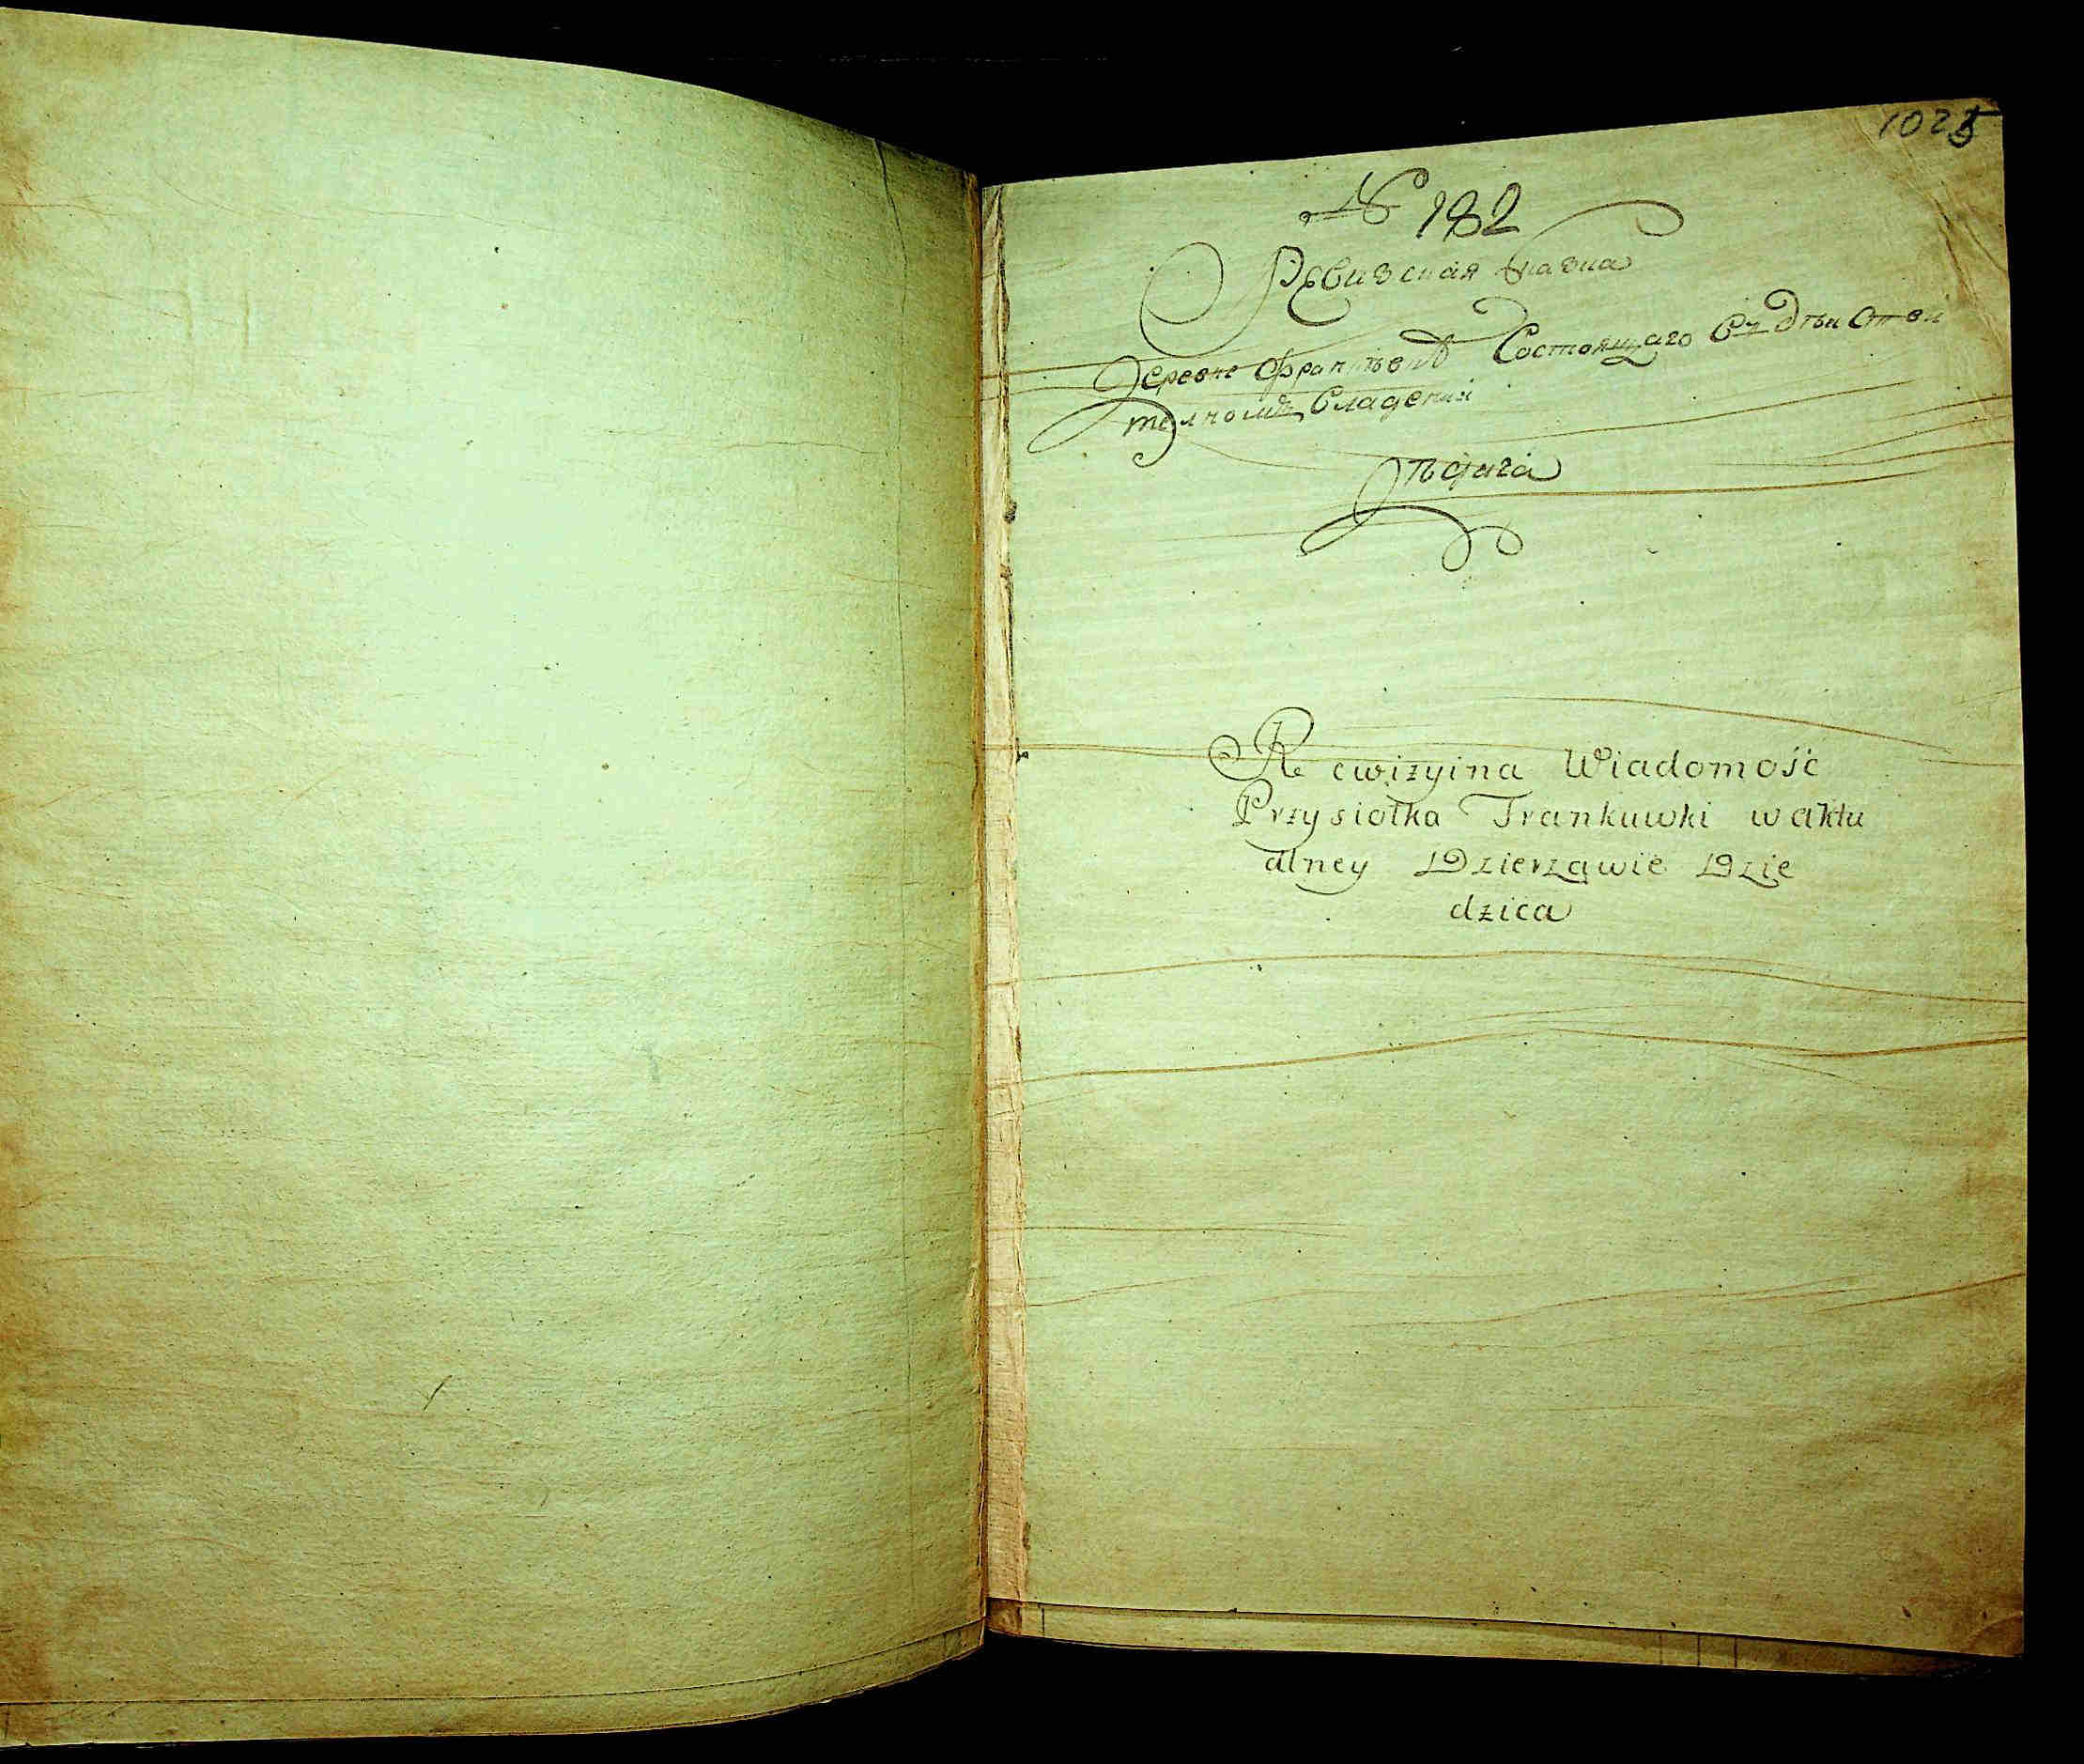 1025
№ 182
Ревизская сказка
Деревне Франковъ Состоящаго въ Дѣистви
телномъ владении
Rewizyina Wiadomość
Przysiołka Frankuwki w aktu
alney Dzierzawie Dzie
dzica